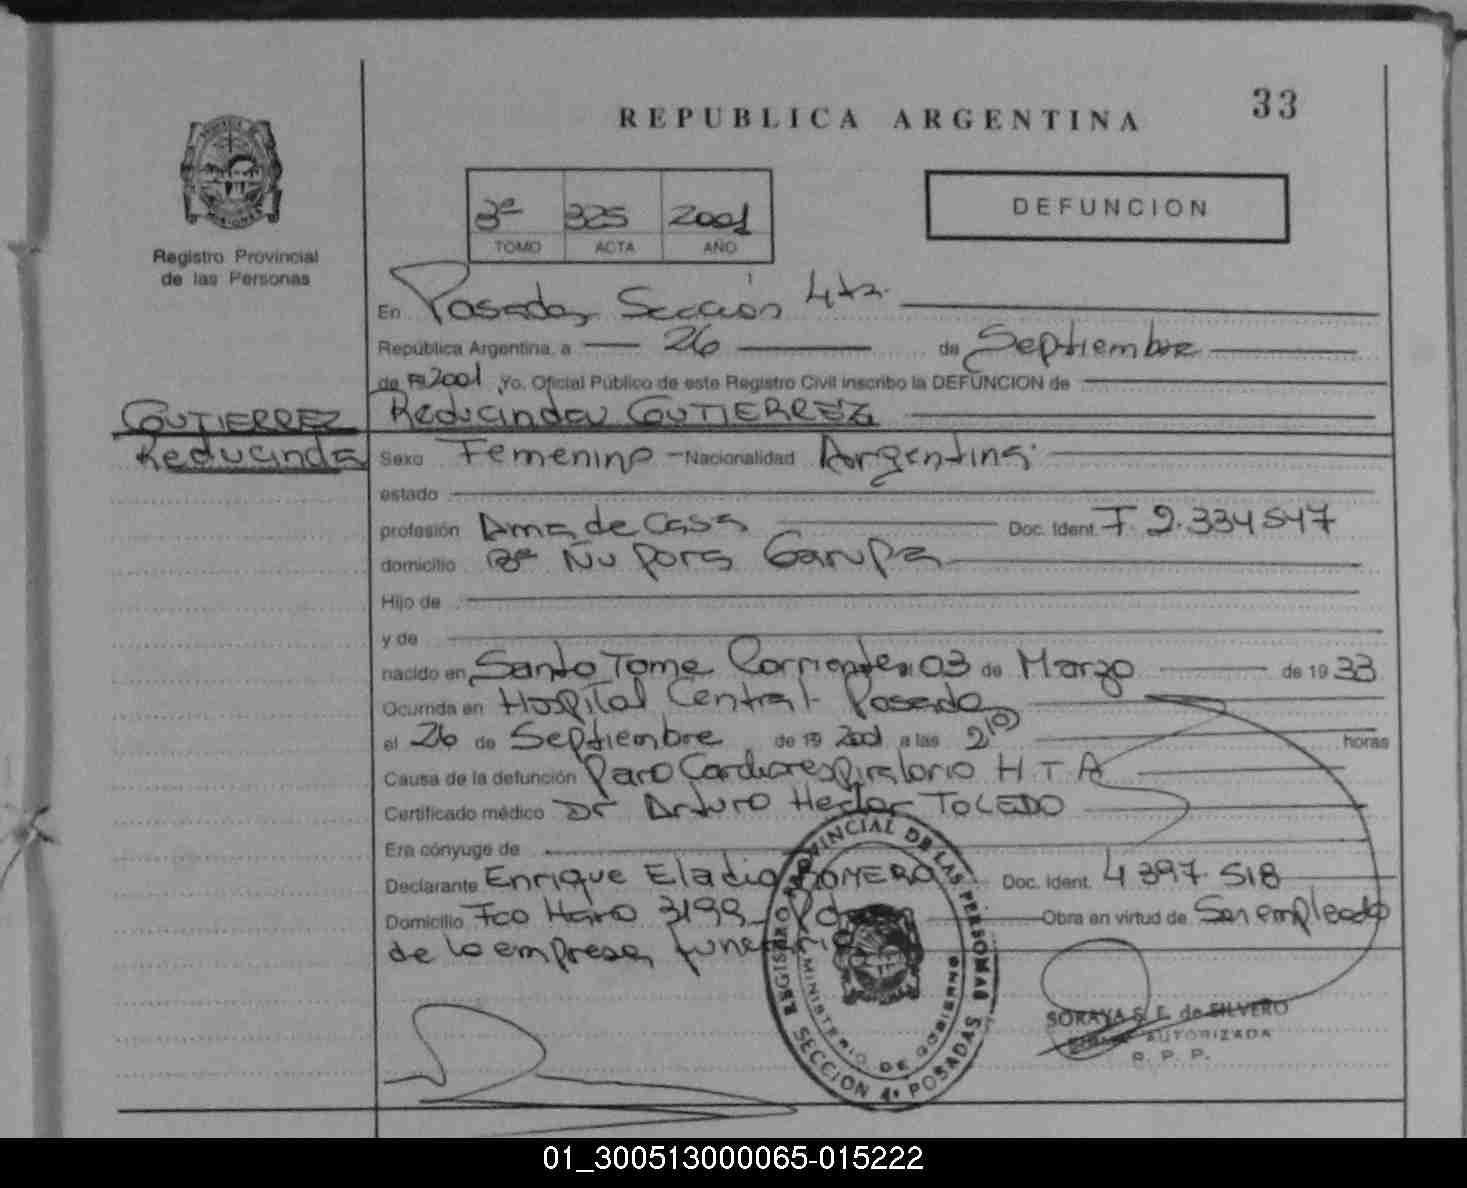 33
REPUBLICA ARGENTINA
DEFUNCION
3º 325 2001
TOMO ACTA AÑO
Registro Provincial
de las Personas
En Posadas, Sección 4ta.
República Argentina, a 26 de Septiembre
de 2001 Yo, Oficial Público de este Registro Civil inscribo la DEFUNCION de
GUTIERREZ
Reducinda
Reducinda GUTIERREZ
Sexo Femenino - Nacionalidad Argentina
estado
profesión Ama de Casa Doc. Ident. F. 2.334547
domicilio Bº Ñu Pora Garupa
Hijo de
y de
nacido en Santo Tome Corrientes 03 de Marzo de 1933
Ocurrida en Hospital Central Posadas
el 26 de Septiembre de 19 2001 a las 2 10 horas
Causa de la defunción Paro Cardiorespiratorio H T A
Certificado médico Dr Arturo Hector TOLEDO
Era cónyuge de
Declarante Enrique Eladio ROMERO Doc. Ident. 4 397 518
Domicilio Fco Haro 3199 Pdas Obra en virtud de Ser empleado
de la empresa funeraria
REGISTRO PROVINCIAL DE LAS PERSONAS
MINISTERIO DE GOBIERNO
SECCION 4ª POSADAS
SORAYA S. E. de SILVERO
FIRMA AUTORIZADA
R. P. P.
01_300513000065-015222